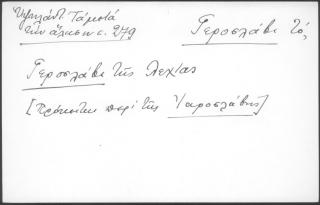 Υψηλάντ. Τὰ μετὰ
τὴν ἅλωσιν σ. 279
Γεροσλάβι τό,
Γεροσλάβι τῆς Λεχίας
[Πρόκειται περὶ τῆς Ἰαροσλάβης]